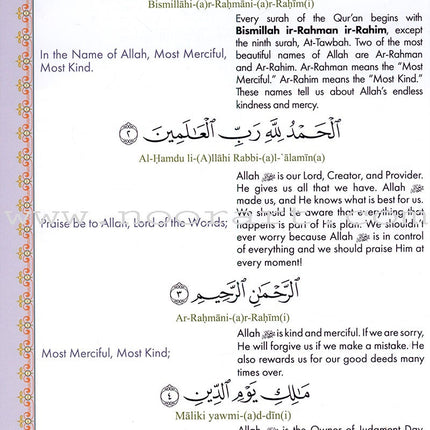 Bismillāhi-(a)r-Raḥmāni-(a)r-Raḥīm(i)
In the Name of Allah, Most Merciful,
Most Kind.
Every surah of the Qur'an begins with
Bismillah ir-Rahman ir-Rahim, except
the ninth surah, At-Tawbah. Two of the most
beautiful names of Allah are Ar-Rahman
and Ar-Rahim. Ar-Rahman means the "Most
Merciful." Ar-Rahim means the "Most Kind."
These names tell us about Allah's endless
kindness and mercy.
ٱلۡحَمۡدُ لِلَّهِ رَبِّ ٱلۡعَـٰلَمِينَ ٢
Al-Ḥamdu li-(A)llāhi Rabbi-(a)l-`ālamīn(a)
Praise be to Allah, Lord of the Worlds;
Allah ﷻ is our Lord, Creator, and Provider.
He gives us all that we have. Allah ﷻ
made us, and He knows what is best for us.
We should be aware that everything that
happens is part of His plan. We shouldn't
ever worry because Allah ﷻ is in control
of everything and we should praise Him at
every moment!
ٱلرَّحۡمَـٰنِ ٱلرَّحِيمِ ٣
Ar-Raḥmāni-(a)r-Raḥīm(i)
Most Merciful, Most Kind;
Allah ﷻ is kind and merciful. If we are sorry,
He will forgive us if we make a mistake. He
also rewards us for our good deeds many
times over.
مَـٰلِكِ يَوۡمِ ٱلدِّينِ ٤
Māliki yawmi-(a)d-dīn(i)
Allah ﷻ is the Owner of Judgment Day